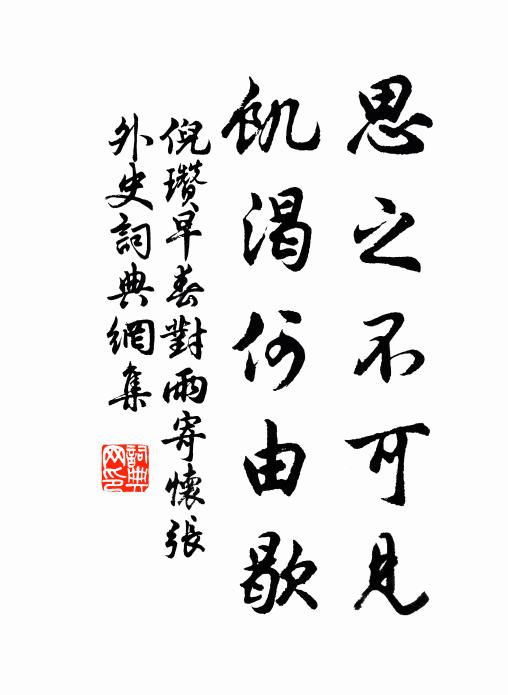 思之不可見
飢渴何由歇
倪瓚早春對雨寄懷張
外史詞典網集
詞典网印